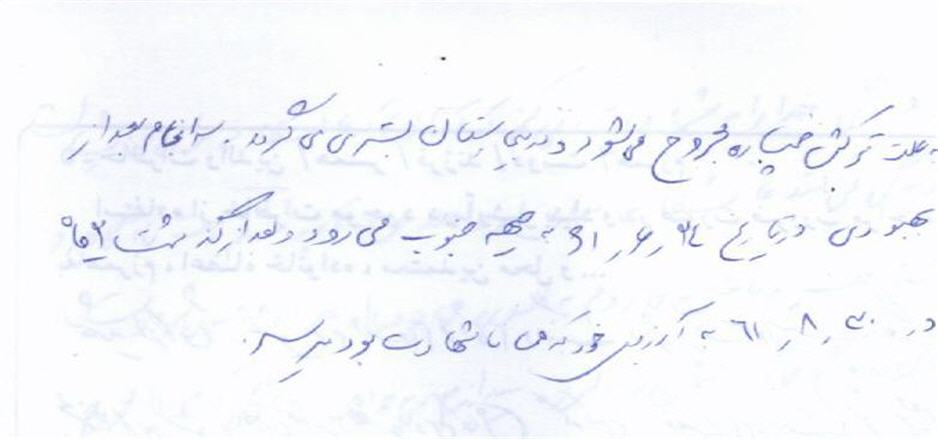 به علت ترکش خمپاره مجروح می‌شود و در بیمارستان بستری می گردد. سرانجام بعد از
بهبودی در تاریخ ۶۱٫۶٫۲۴ به جبهه جنوب می رود و بعد از گذشت
در ۳۰٫۸٫۶۱ به آرزوی خود که همانا شهادت بود می‌رسد.